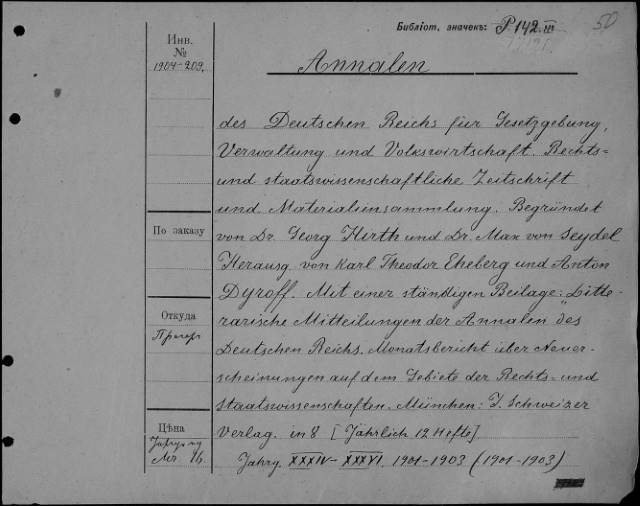 Библіот. значекъ: P 142 III
50
Инв.
№
1904-209.
По заказу
Откуда
Цѣна
Annalen
des Deutschen Reichs für Gesetzgebung,
Verwaltung und Volkswirtschaft. Rechts=
und staatswissenschaftliche Zeitschrift
und Materialiensammlung. Begründet
von Dr. Georg Hirth und Dr. Max von Seydel
Herausg. von Karl Theodor Eheberg und Anton
Dyroff. Mit einer ständigen Beilage: „Litte-
rarische Mitteilungen der Annalen des
Deutschen Reichs. Monatsbericht über Neuer-
scheinungen auf dem Gebiete der Rechts= und
Staatswissenschaften. München: J. Schweizer
Verlag. in 8 [Jährlich 12 Hefte]
Jahrg. XXXIV - XXXVI. 1901-1903 (1901-1903)